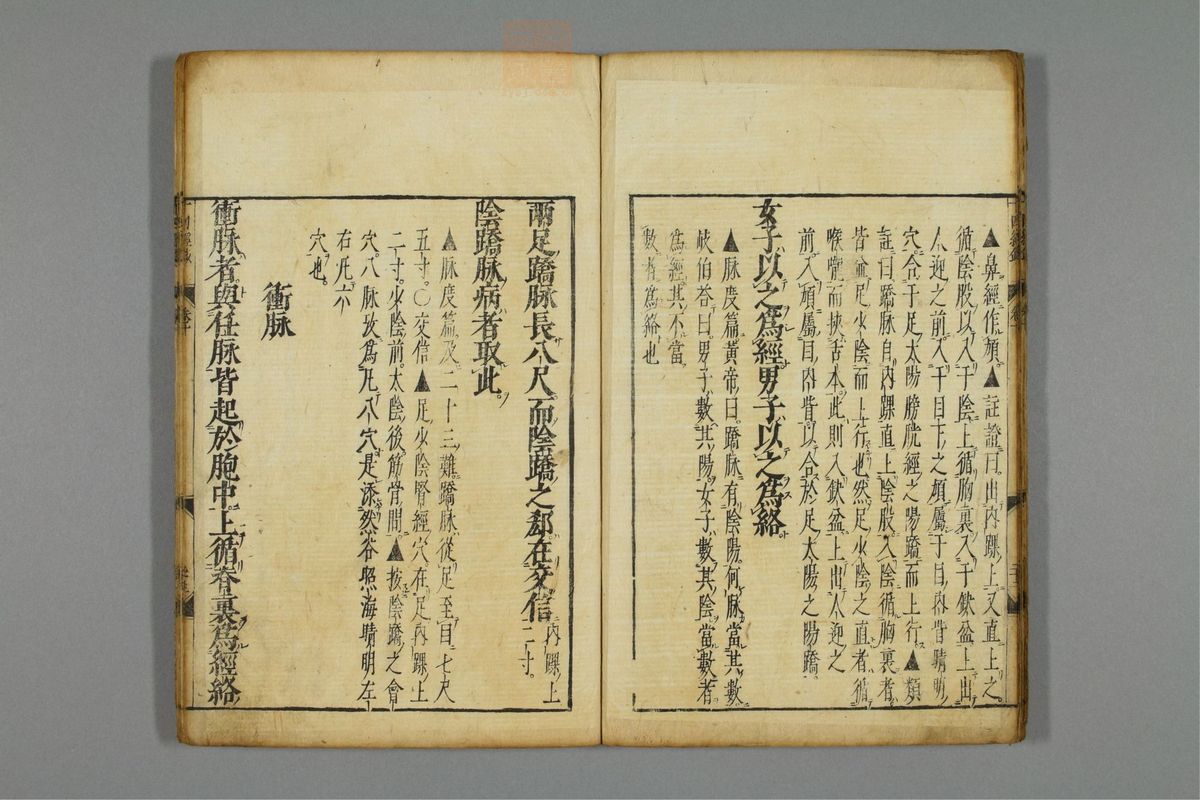 ▲鼻經作頞▲註證曰出內踝上又直上之
循陰股以入于陰上循胸裏入于缺盆上出
人迎之前入于目下之頄屬于目內眥睛明
穴合于足太陽膀胱經之陽蹻而上行▲類
註曰蹻脉自內踝直上陰股入陰循胸裏者
皆並足少陰而上行也然足少陰之直者循
喉嚨而挾舌本此則入缺盆上出人迎之
前入頄屬目內眥以合於足太陽之陽蹻
女子以之爲經男子以之爲絡
▲脉度篇黃帝曰蹻脉有陰陽何脉當其數
岐伯答曰男子數其陽女子數其陰當數者
爲經其不當
數者爲絡也
兩足蹻脉長八尺而陰蹻之郄在交信內踝上二寸
陰蹻脉病者取此
▲脉度篇及二十三難蹻脉從足至目七尺
五寸○交信▲足少陰腎經穴在足內踝上
二寸少陰前太陰後筋骨間▲按陰蹻之會
穴八脉攷爲凡八穴是添然谷照海睛明左
右凡六
穴也
衝脉
衝脉者與任脉皆起於胞中上循脊裏爲經絡